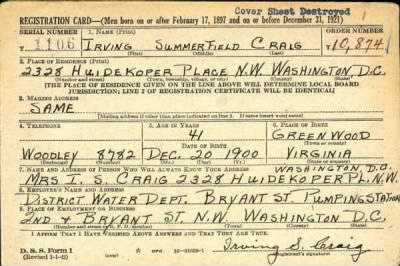 Cover Sheet Destroyed
REGISTRATION CARD—(Men born on or after February 17, 1897 and on or before December 31, 1921)
SERIAL NUMBER 1. NAME (Print) ORDER NUMBER
T 1106 IRVING SUMMERFIELD CRAIG 10,874
(First) (Middle) (Last)
2. PLACE OF RESIDENCE (Print)
2328 HUIDEKOPER PLACE N.W. WASHINGTON, D.C.
(Number and street) (Town, township, village, or city) (County) (State)
[THE PLACE OF RESIDENCE GIVEN ON THE LINE ABOVE WILL DETERMINE LOCAL BOARD
JURISDICTION; LINE 2 OF REGISTRATION CERTIFICATE WILL BE IDENTICAL]
3. MAILING ADDRESS
SAME
[Mailing address if other than place indicated on line 2. If same insert word same]
4. TELEPHONE 5. AGE IN YEARS 6. PLACE OF BIRTH
41 GREENWOOD
DATE OF BIRTH (Town or county)
WOODLEY 8782 DEC. 20 1900 VIRGINIA
(Exchange) (Number) (Mo.) (Day) (Yr.) (State or country)
7. NAME AND ADDRESS OF PERSON WHO WILL ALWAYS KNOW YOUR ADDRESS WASHINGTON, D.C.
MRS I. S. CRAIG 2328 HUIDEKOPER PL. N.W.
8. EMPLOYER'S NAME AND ADDRESS
DISTRICT WATER DEPT. BRYANT ST. PUMPING STATION
9. PLACE OF EMPLOYMENT OR BUSINESS
2ND & BRYANT ST. N.W. WASHINGTON D.C.
(Number and street or R. F. D. number) (Town) (County) (State)
I AFFIRM THAT I HAVE VERIFIED ABOVE ANSWERS AND THAT THEY ARE TRUE.
D. S. S. Form 1
(Revised 1-1-42) (over) Irving S. Craig